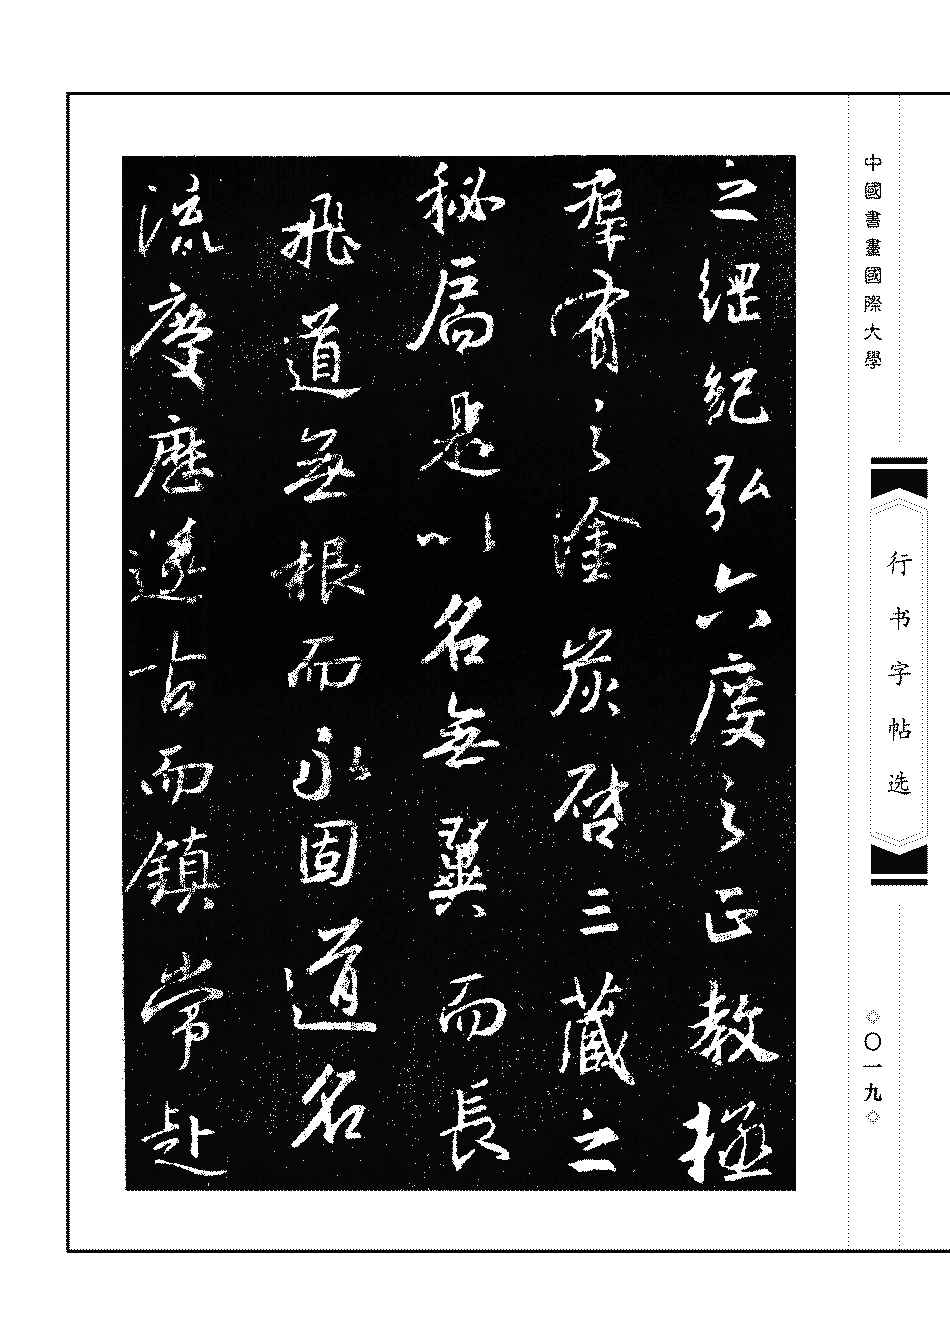 之綱紀弘六度之正教極
群有之塗炭啓三藏之
秘扃是以名無翼而長
飛道無根而永固道名
流慶歷遂古而鎮常赴
中國書畫國際大學
行书字帖选
〇一九